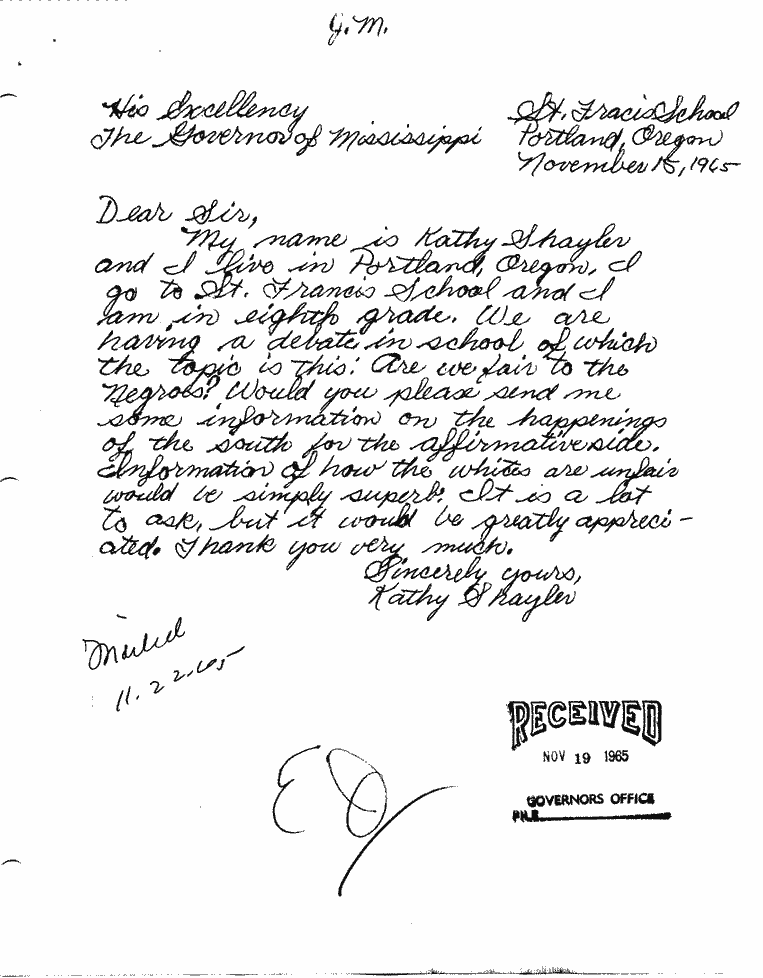 J.M.
His Excellency
The Governor of Mississippi
St. Fracis School
Portland, Oregon
November 15, 1965
Dear Sir,
My name is Kathy Shayler
and I live in Portland, Oregon. I
go to St. Francis School and I
am in eighth grade. We are
having a debate in school of which
the topic is this: Are we fair to the
Negroes? Would you please send me
some information on the happenings
of the south for the affirmative side.
Information of how the whites are unfair
would be simply superb. It is a lot
to ask, but it would be greatly appreci-
ated. Thank you very much.
Sincerely yours,
Kathy Shayler
Mailed
11.22.65
RECEIVED
NOV 19 1965
GOVERNORS OFFICE
FILE